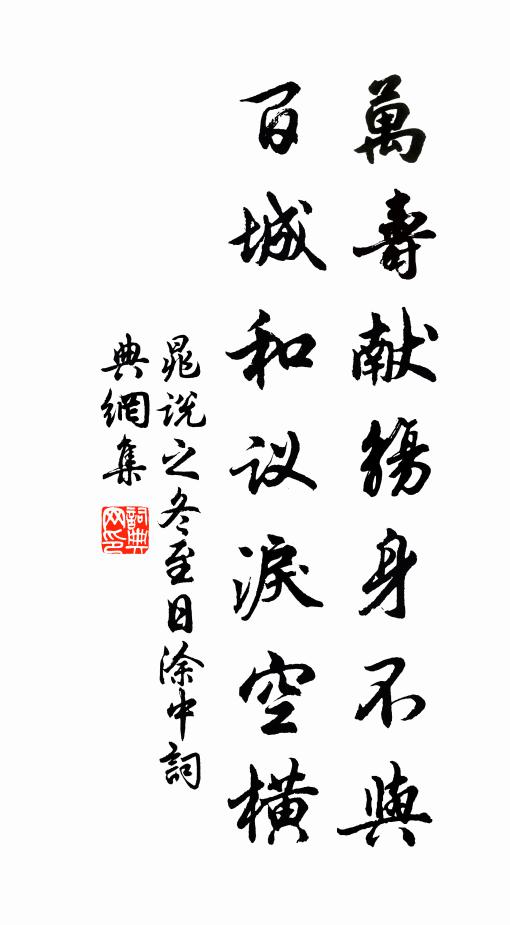 萬壽献觴身不與
百城和议淚空橫
晁说之冬至日涂中詞
典網集
詞典网印